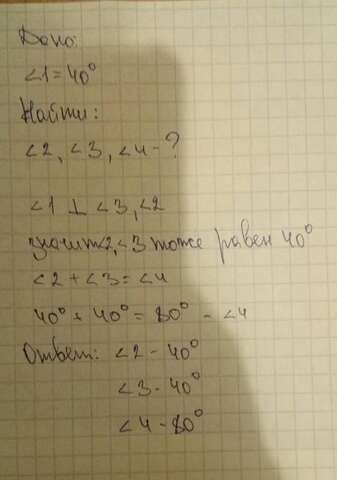 Дано:
<1 = 40°
Найти:
<2, <3, <4 - ?
<1 ⊥ <3, <2
значит <2, <3 тоже равен 40°
<2 + <3 = <4
40° + 40° = 80° - <4
Ответ: <2 - 40°
<3 - 40°
<4 - 80°